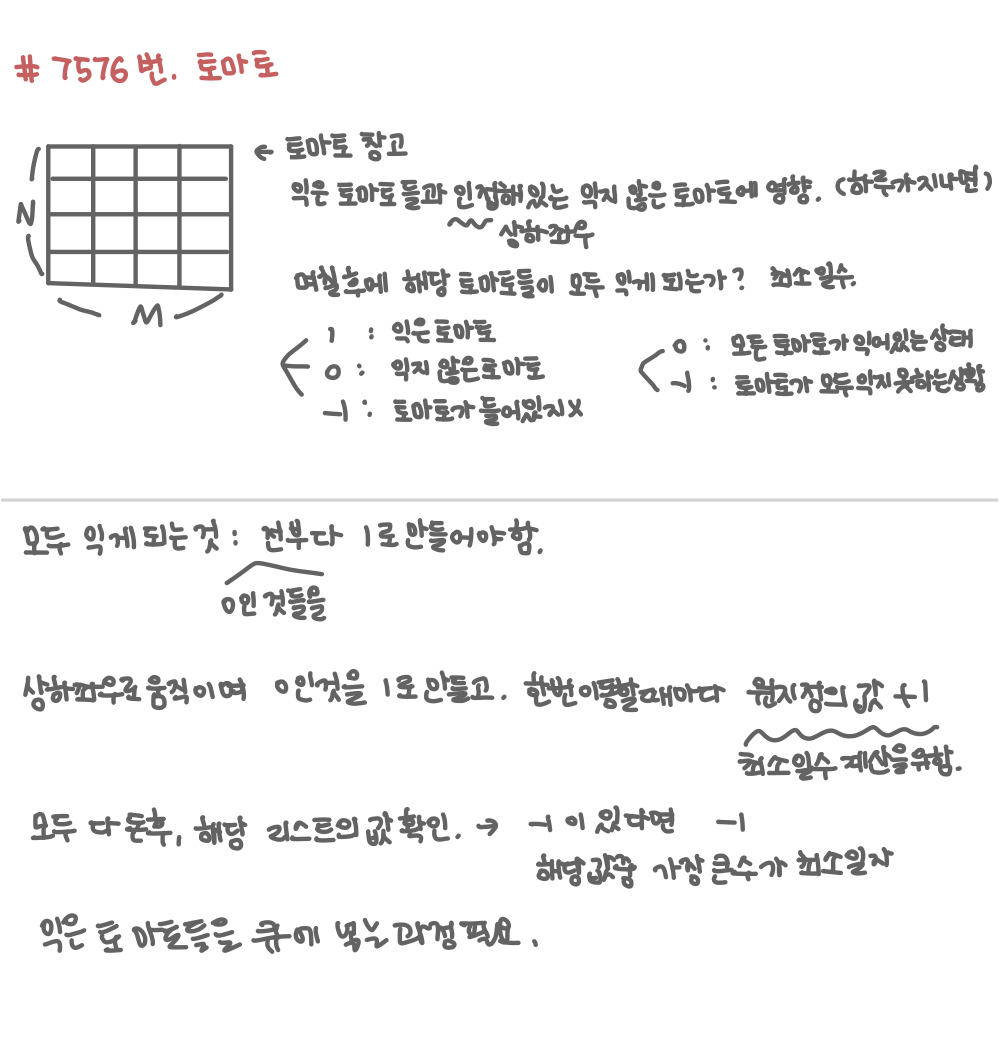 # 7576번. 토마토
← 토마토 창고
익은 토마토들과 인접해있는 익지 않은 토마토에 영향. (하루가지나면)
상하좌우
N
M
며칠후에 해당 토마토들이 모두 익게 되는가? 최소일수.
1 : 익은토마토
0 : 익지 않은토마토
-1 : 토마토가 들어있지X
0 : 모든 토마토가 익어있는상태
-1 : 토마토가 모두익지못하는상황
모두 익게되는것 : 전부다 1로만들어야함.
0인 것들을
상하좌우로움직이며 0인것을 1로만들고. 한번이동할때마다 원지점의값 +1
최소일수 계산을위함.
모두 다돈후, 해당 리스트의값확인. → -1이있다면 -1
해당값중 가장큰수가 최소일자
익은토마토들을 큐에 넣는과정필요.